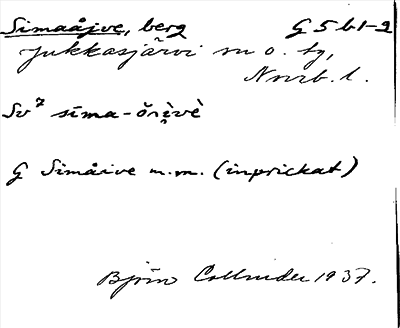 Simaåjve, berg G 5 b 1-2
Jukkasjärvi sn o. tg,
Nrrb. l.
Sv² sīma-
G Simåive m.m. (inprickat)
Björn Collinder 1937.